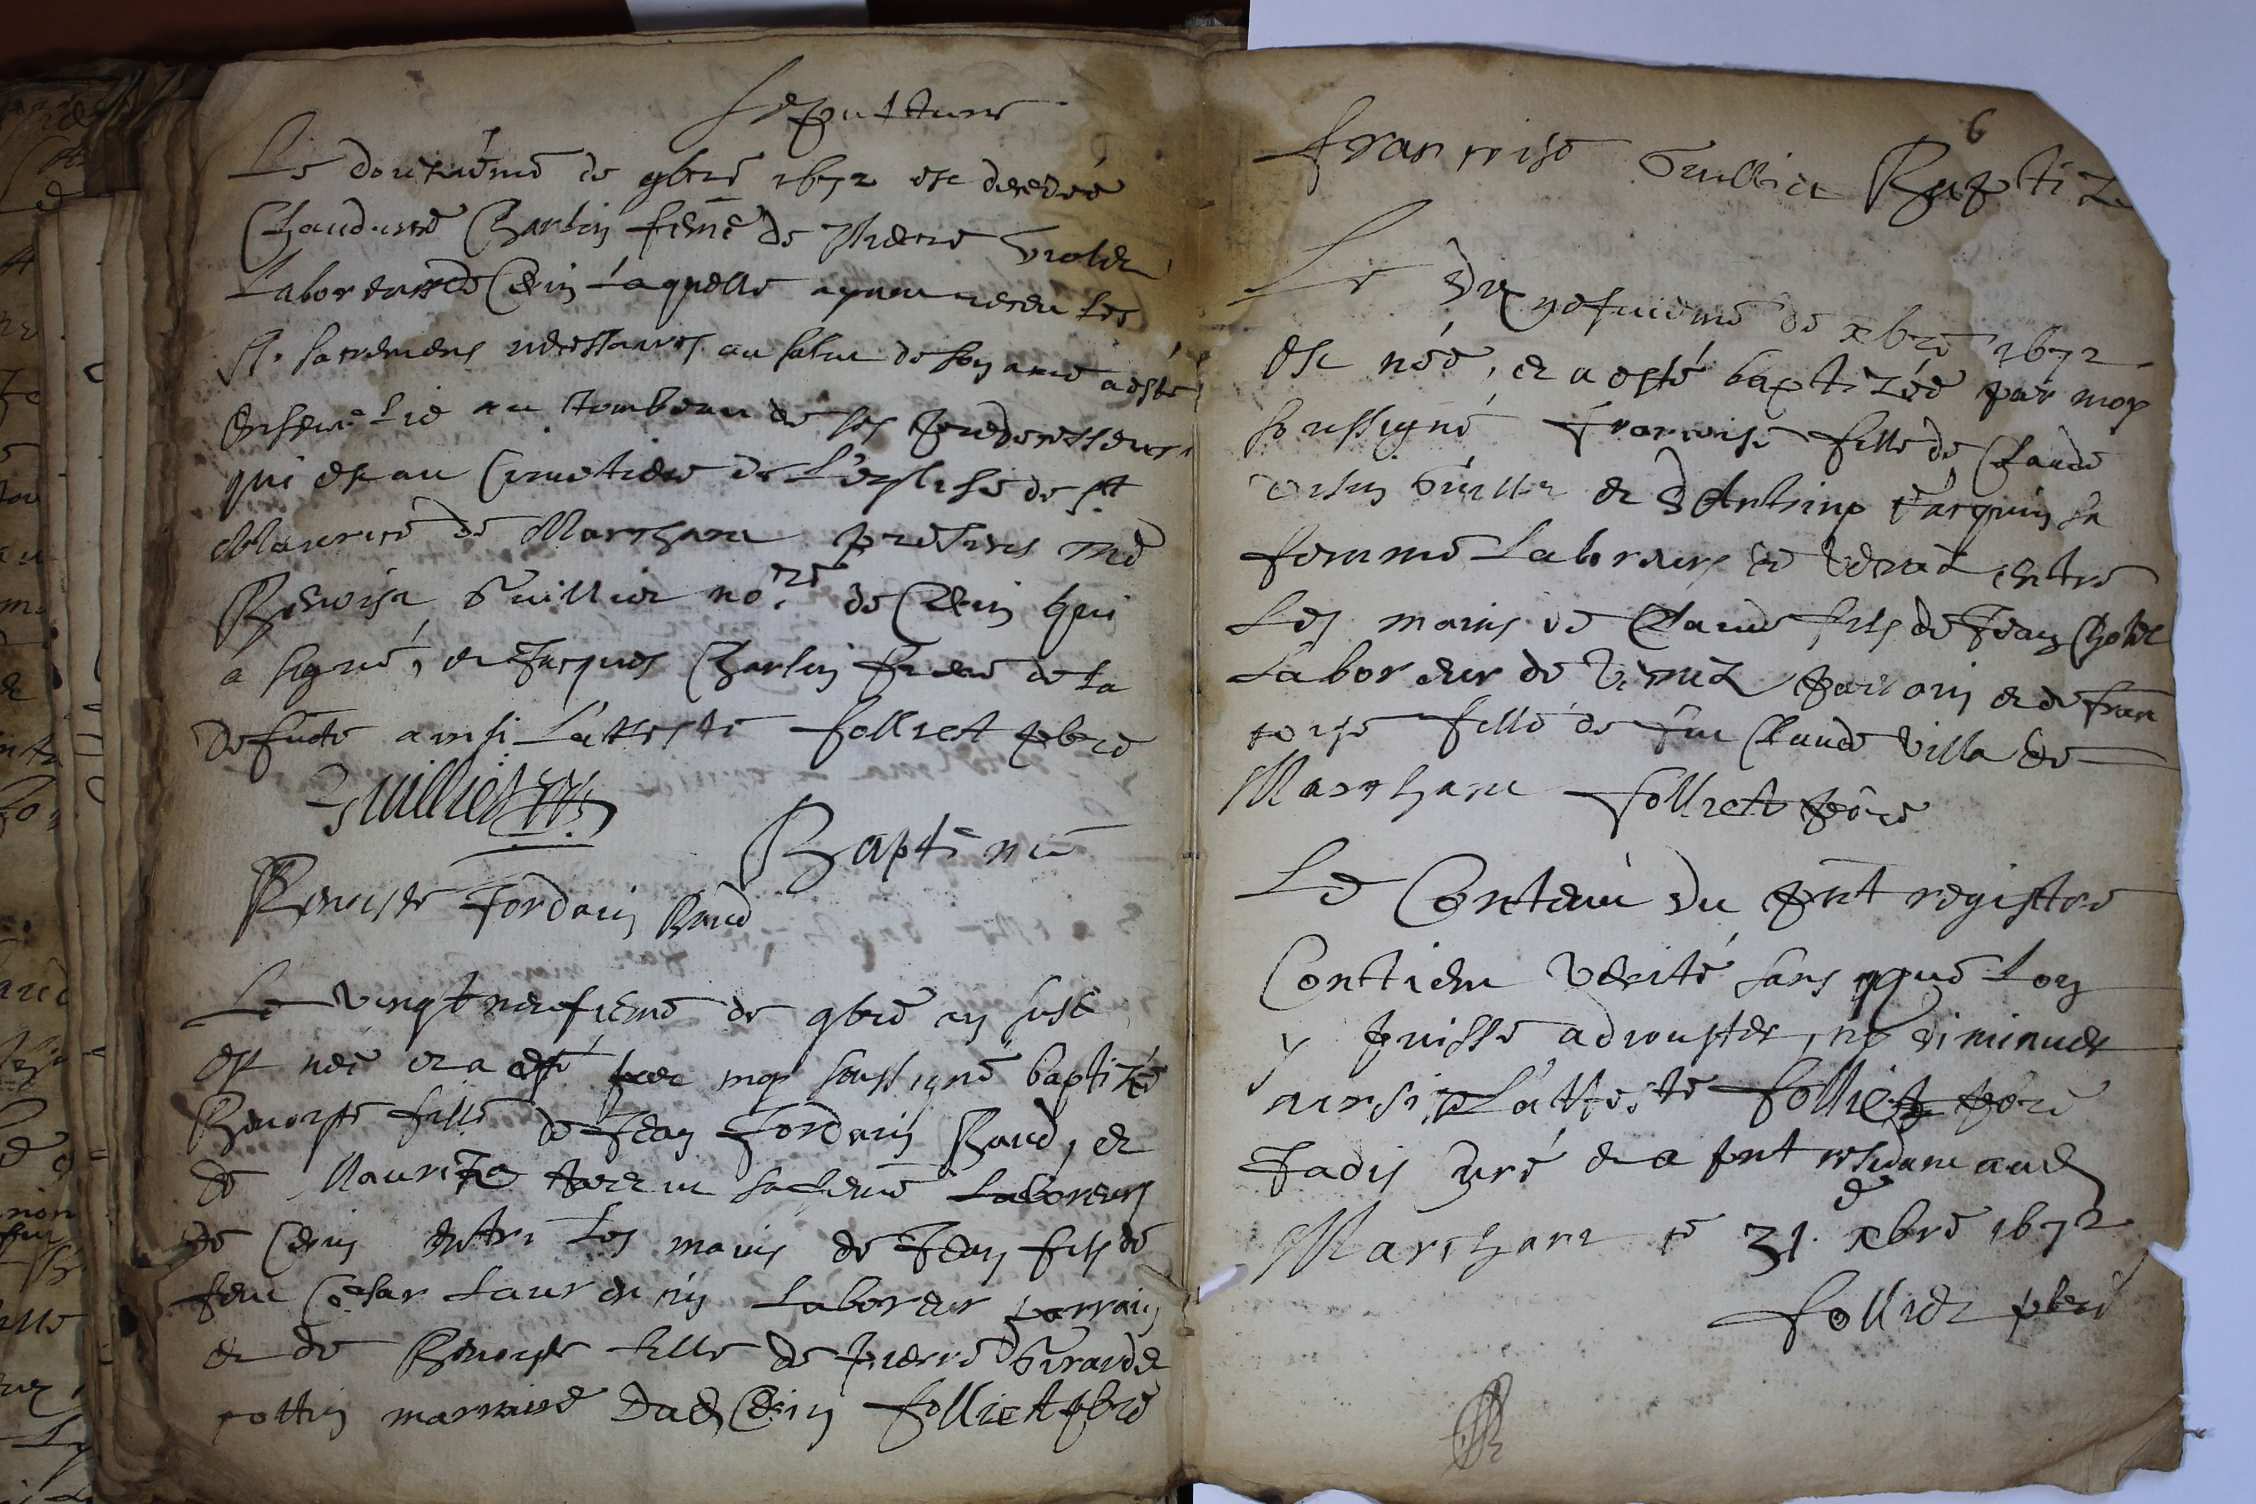 Sepulture
Le douziéme de 9bre 1672 est decedée
Claudine Charlin femē de Pierre Violet
Laboreur de Cerin Laquelle ayant receu les
St. sacremens necessaires au salut de son ame a esté
Ensevelie au tombeau de ses predecesseurs
qui est au Cimetiere de L'eglise de St
Maurice de Marchant presens me
Benoist Guilliet nore de Cerin qui
a signé, et Jacques Charlin frere de la
defuncte ainsi L'atteste Folliet pbre
Guilliet
Baptême
Benoiste Jordain Baud
Le vingt neufieme de 9bre an susd
est née et a esté par moy soussigné baptizée
Benoyste fille de Jean Jordain Baud, et
de Maurize sa femē Laboreurs
de Cerin entre les mains de Jean fils de
feu Cesar Laurencin Laboreur parrain
et de Benoyste fille de Pierre Girarde
cottin marraine dud Cerin Folliet pbre
6
Françoise Guillier Baptiz
Le Dix nefvieme de xbre 1672
est née, et a esté baptizée par moy
soussigné Françoise fille de Claude
Guiller et d'Anthoina Jacquin sa
femme Laboreurs de entre
les mains de Claude fils de Jean
Laboreur de parroin et de Fran
coise fille de feu Claude Villa de
Marchant Folliet pbre
Le Contenu du pnt registre
Contient verité sans que Lon
y puisse adiouster, ny diminuer
ainsi L'atteste Folliet pbre
Jadis curé et a pnt residant aud
Marchant ce 31e xbre 1672
Folliet pbre